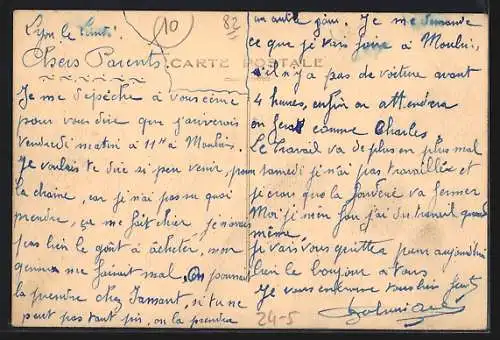 Lyon le Lundi
10
82
Chers Parents
CARTE POSTALE
Je me dépêche à vous écrire
pour vous dire que j'arriverais
vendredi matin à 11h à Moulins.
Je voulais te dire si peu venir pour
la chaine, car je n'ai pas su quoi
prendre, ça me fait chier, je n'avais
pas bien le goût à acheter, mon
me faisait mal. On pourrait
la prendre chez si tu ne
peut pas tant pis, on la prendra
un autre jour. Je me demande
ce que je vais faire à Moulins,
s'il n'y a pas de voiture avant
4 heures, enfin on attendra
on fera comme Charles.
Le travail va de plus en plus mal
samedi je n'ai pas travaillée et
je crois que la va fermer
Moi je m'en fou j'ai du travail quand
même.
Je vais vous quitter pour aujourd'hui
bien le bonjour à tous
Je vous embrasse tous bien fort
24-5